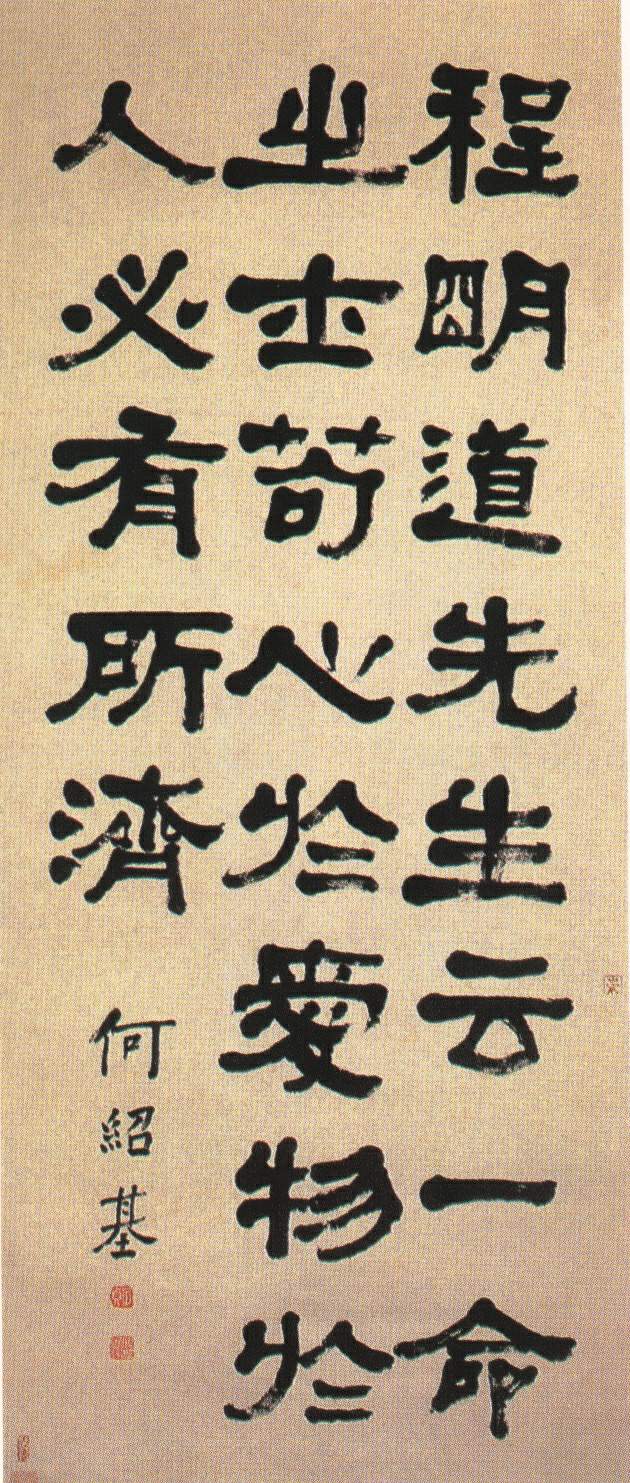 程明道先生云一命
之士苟心於愛物於
人必有所濟
何紹基